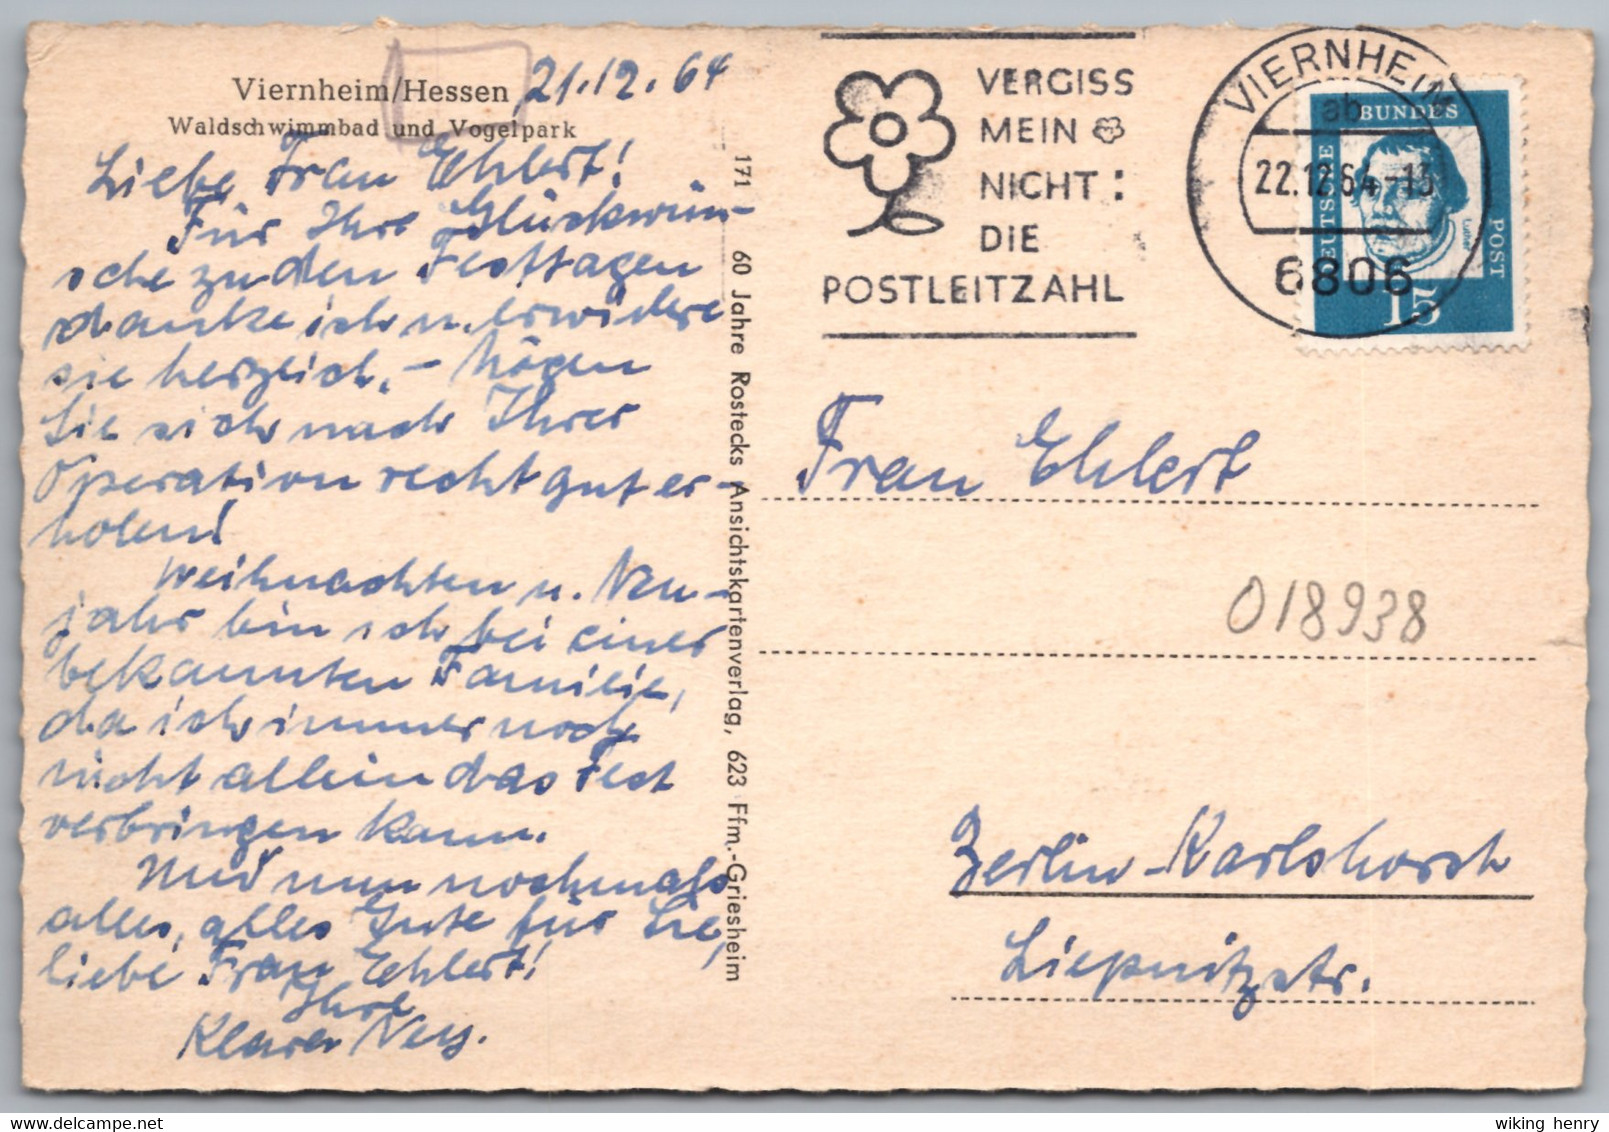 Viernheim/Hessen 21.12.64
Waldschwimmbad und Vogelpark
Liebe Frau Ehlert!
Für Ihre Glückwün-
sche zu den Festtagen
danke ich u. erwidere
sie herzlich. – Mögen
Sie sich nach Ihrer
Operation recht gut er-
holen!
Weihnachten u. Neu-
jahr bin ich bei einer
bekannten Familie,
da ich immer noch
nicht allein das Fest
verbringen kann.
Und nun nochmals
alles, alles Gute für Sie,
liebe Frau Ehlert!
Ihre
171 60 Jahre Rostecks Ansichtskartenverlag, 623 Ffm.-Griesheim
VERGISS
MEIN
NICHT:
DIE
POSTLEITZAHL
VIERNHEIM
ab
22.12.64-13
6806
DEUTSCHE BUNDESPOST
Luther
15
Frau Ehlert
018938
Berlin-Karlshorst
Liepnitzstr.
wiking henry